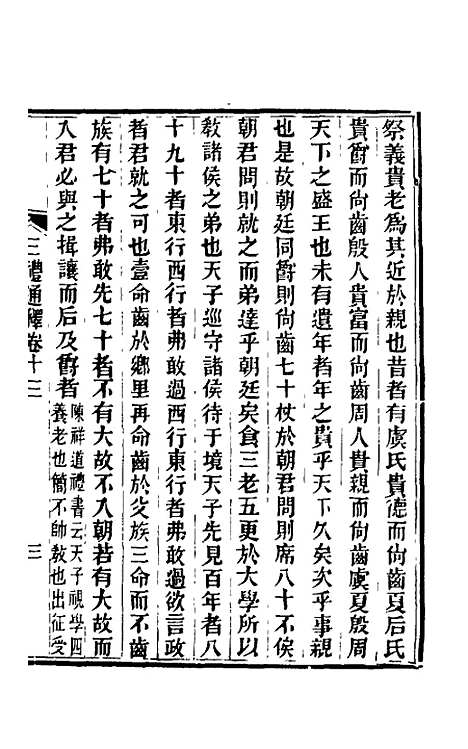 祭義貴老為其近於親也昔者有虞氏貴德而尚齒夏后氏
貴爵而尚齒殷人貴富而尚齒周人貴親而尚齒虞夏殷周
天下之盛王也未有遺年者年之貴乎天下久矣次乎事親
也是故朝廷同爵則尚齒七十杖於朝君問則席八十不俟
朝君問則就之而弟達乎朝廷矣食三老五更於大學所以
教諸侯之弟也天子巡守諸侯待于境天子先見百年者八
十九十者東行西行者弗敢過西行東行者弗敢過欲言政
者君就之可也壹命齒於鄉里再命齒於父族三命而不齒
族有七十者弗敢先七十者不有大故不入朝若有大故而
入君必與之揖讓而后及爵者
陳祥道禮書云天子視學四
養老也簡不帥教也出征受
三禮通釋卷十二
三